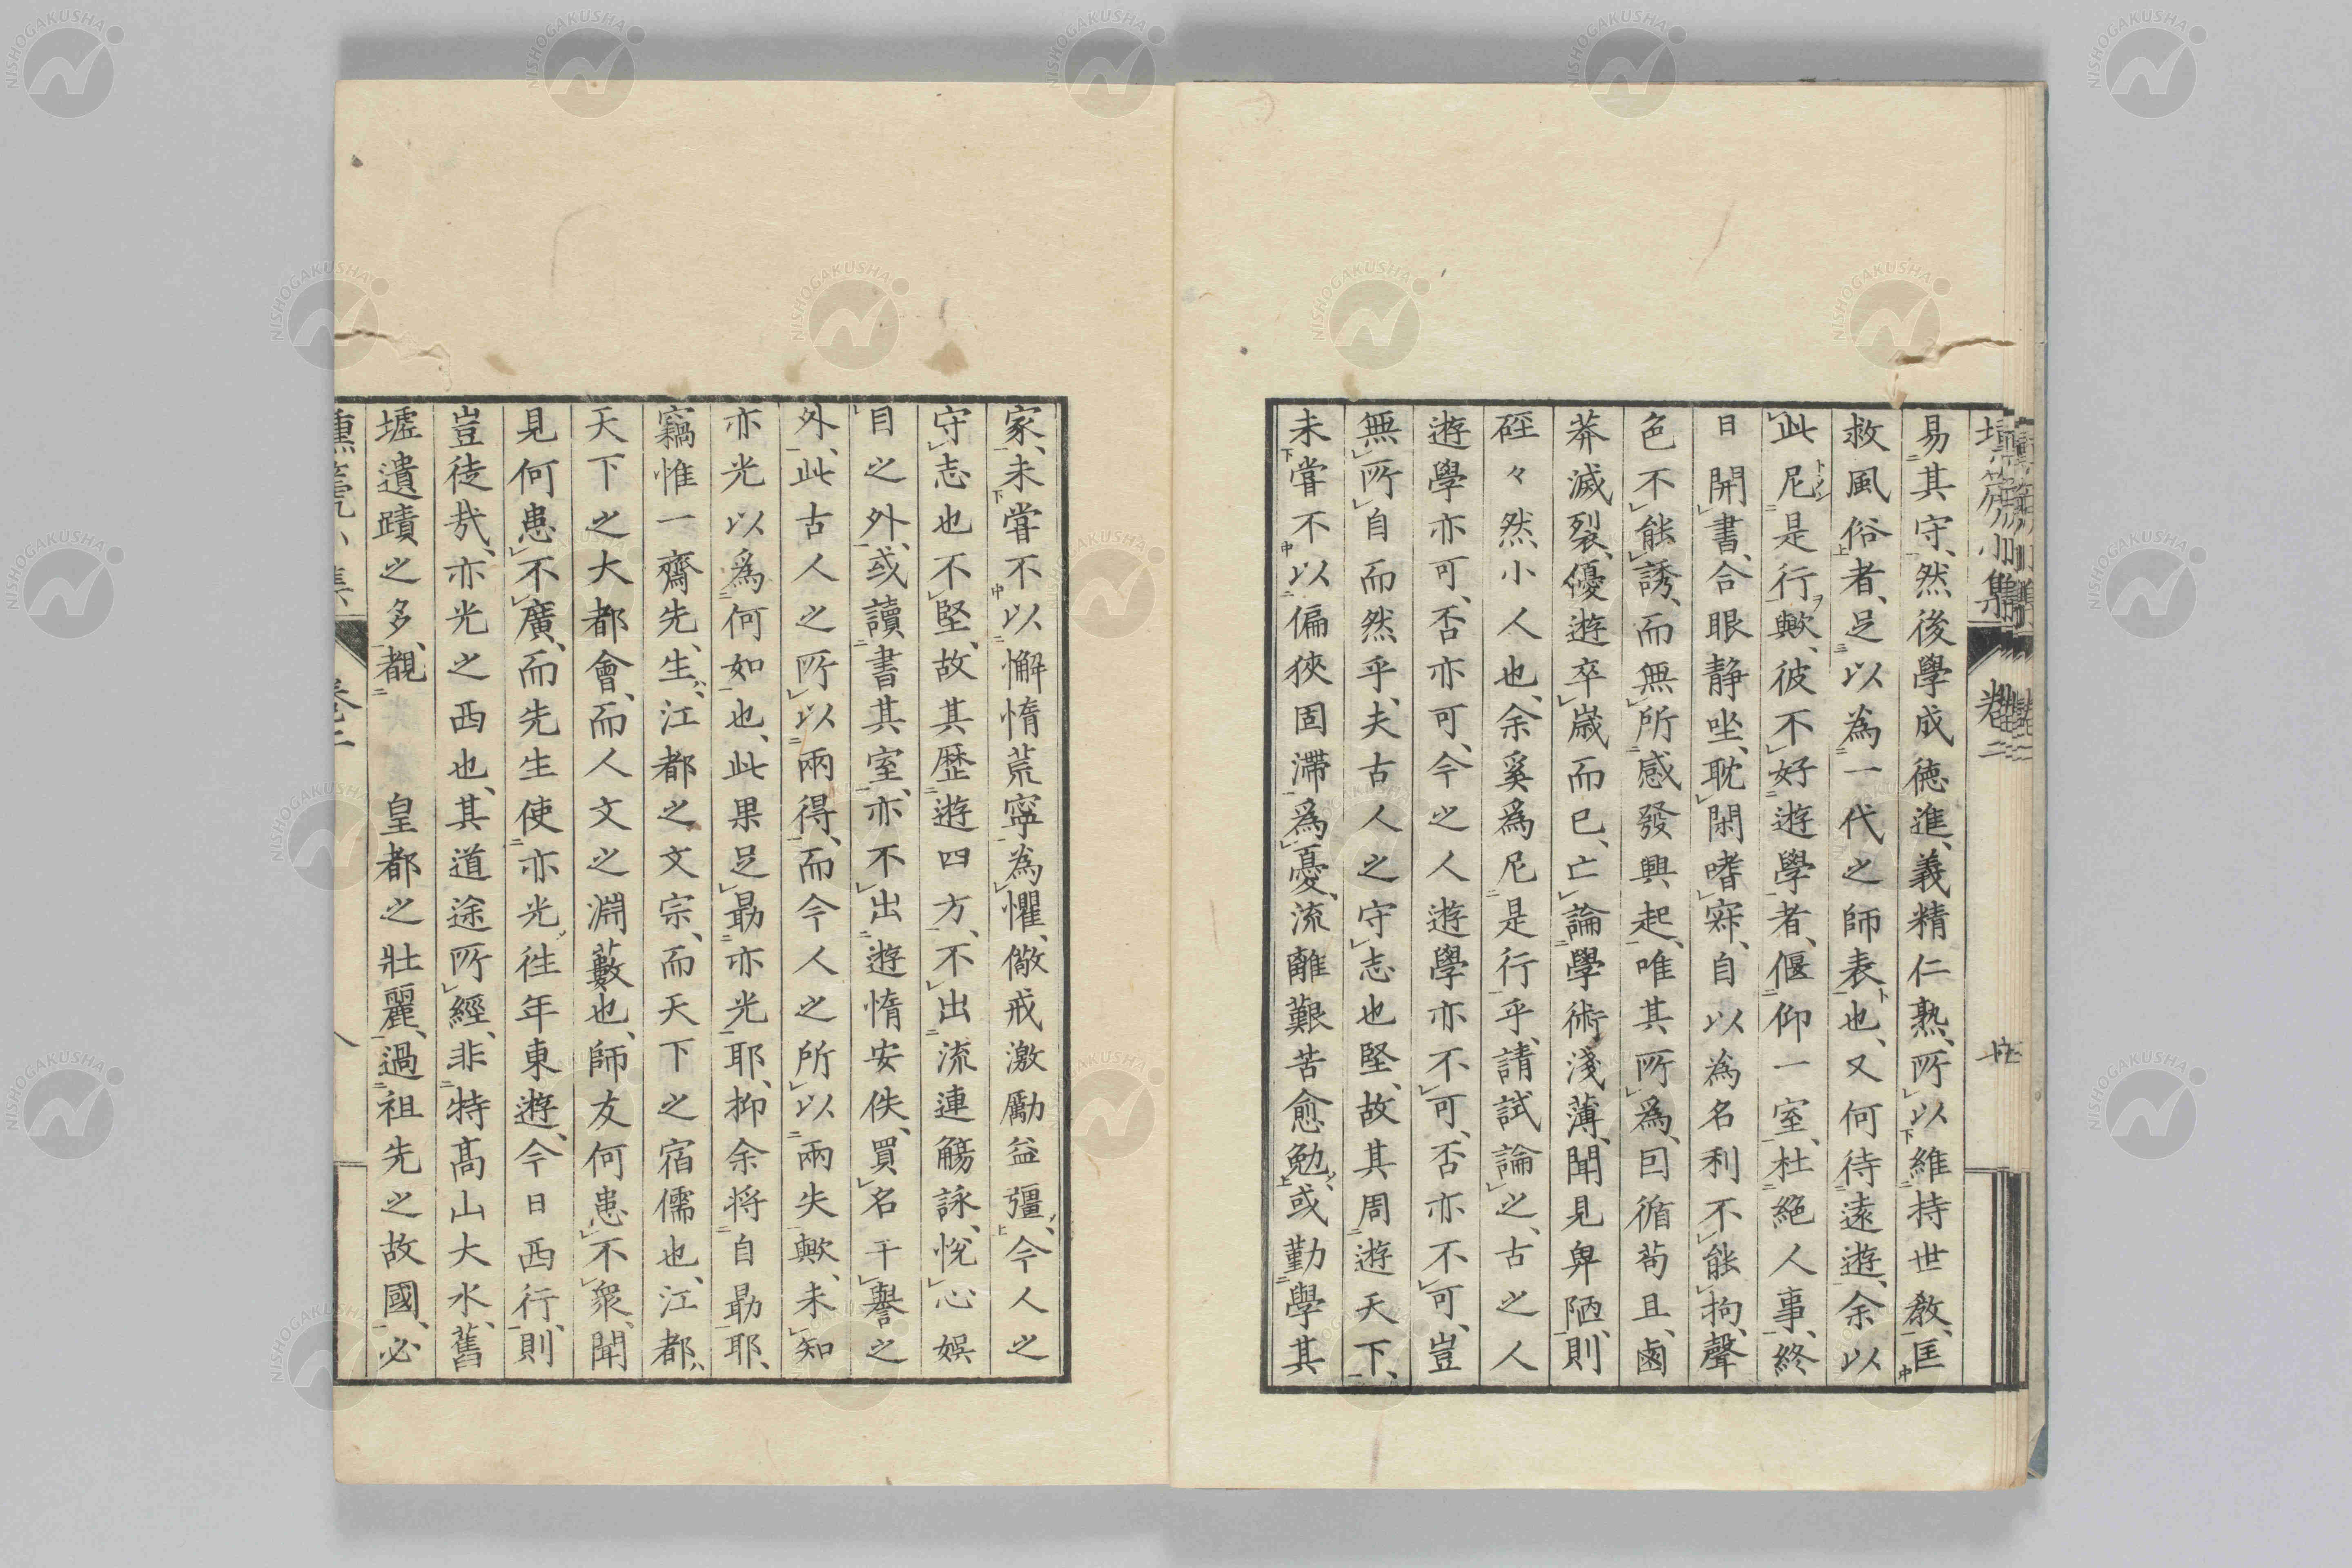 易其守、然後學成德進、義精仁熟、所以維持世教、匡
救風俗者、足以為一代之師表也、又何待遠遊、余以
此尼是行歟、彼不好遊學者、偃仰一室、杜絕人事、終
日開書、合眼靜坐、耽閑嗜寂、自以為名利不能拘、聲
色不能誘、而無所感發興起、唯其所爲、囙循茍且、鹵
莽滅裂、優遊卒歲而已、亡論學術淺薄、聞見卑陋、則
硜々然小人也、余奚爲尼是行乎、請試論之、古之人
遊學亦可、否亦可、今之人遊學亦不可、否亦不可、豈
無所自而然乎、夫古人之守志也堅、故其周遊天下、
未嘗不以偏狹固滯爲憂、流離艱苦愈勉、或勤學其
家、未嘗不以懈惰荒寧為懼、儆戒激勵益彊、今人之
守志也不堅、故其歷遊四方、不出流連觴詠、悅心娛
目之外、或讀書其室、亦不出遊惰安佚、買名干譽之
外、此古人之所以兩得、而今人之所以兩失歟、未知
亦光以爲何如也、此果足勗亦光耶、抑余将自勗耶、
竊惟一齋先生、江都之文宗、而天下之宿儒也、江都
天下之大都會、而人文之淵藪也、師友何患不衆、聞
見何患不廣、而先生使亦光徃年東遊、今日西行、則
豈徒㢤、亦光之西也、其道途所經、非特高山大水、舊
墟遺蹟之多、覩皇都之壯麗、過祖先之故國、必
小集 卷二